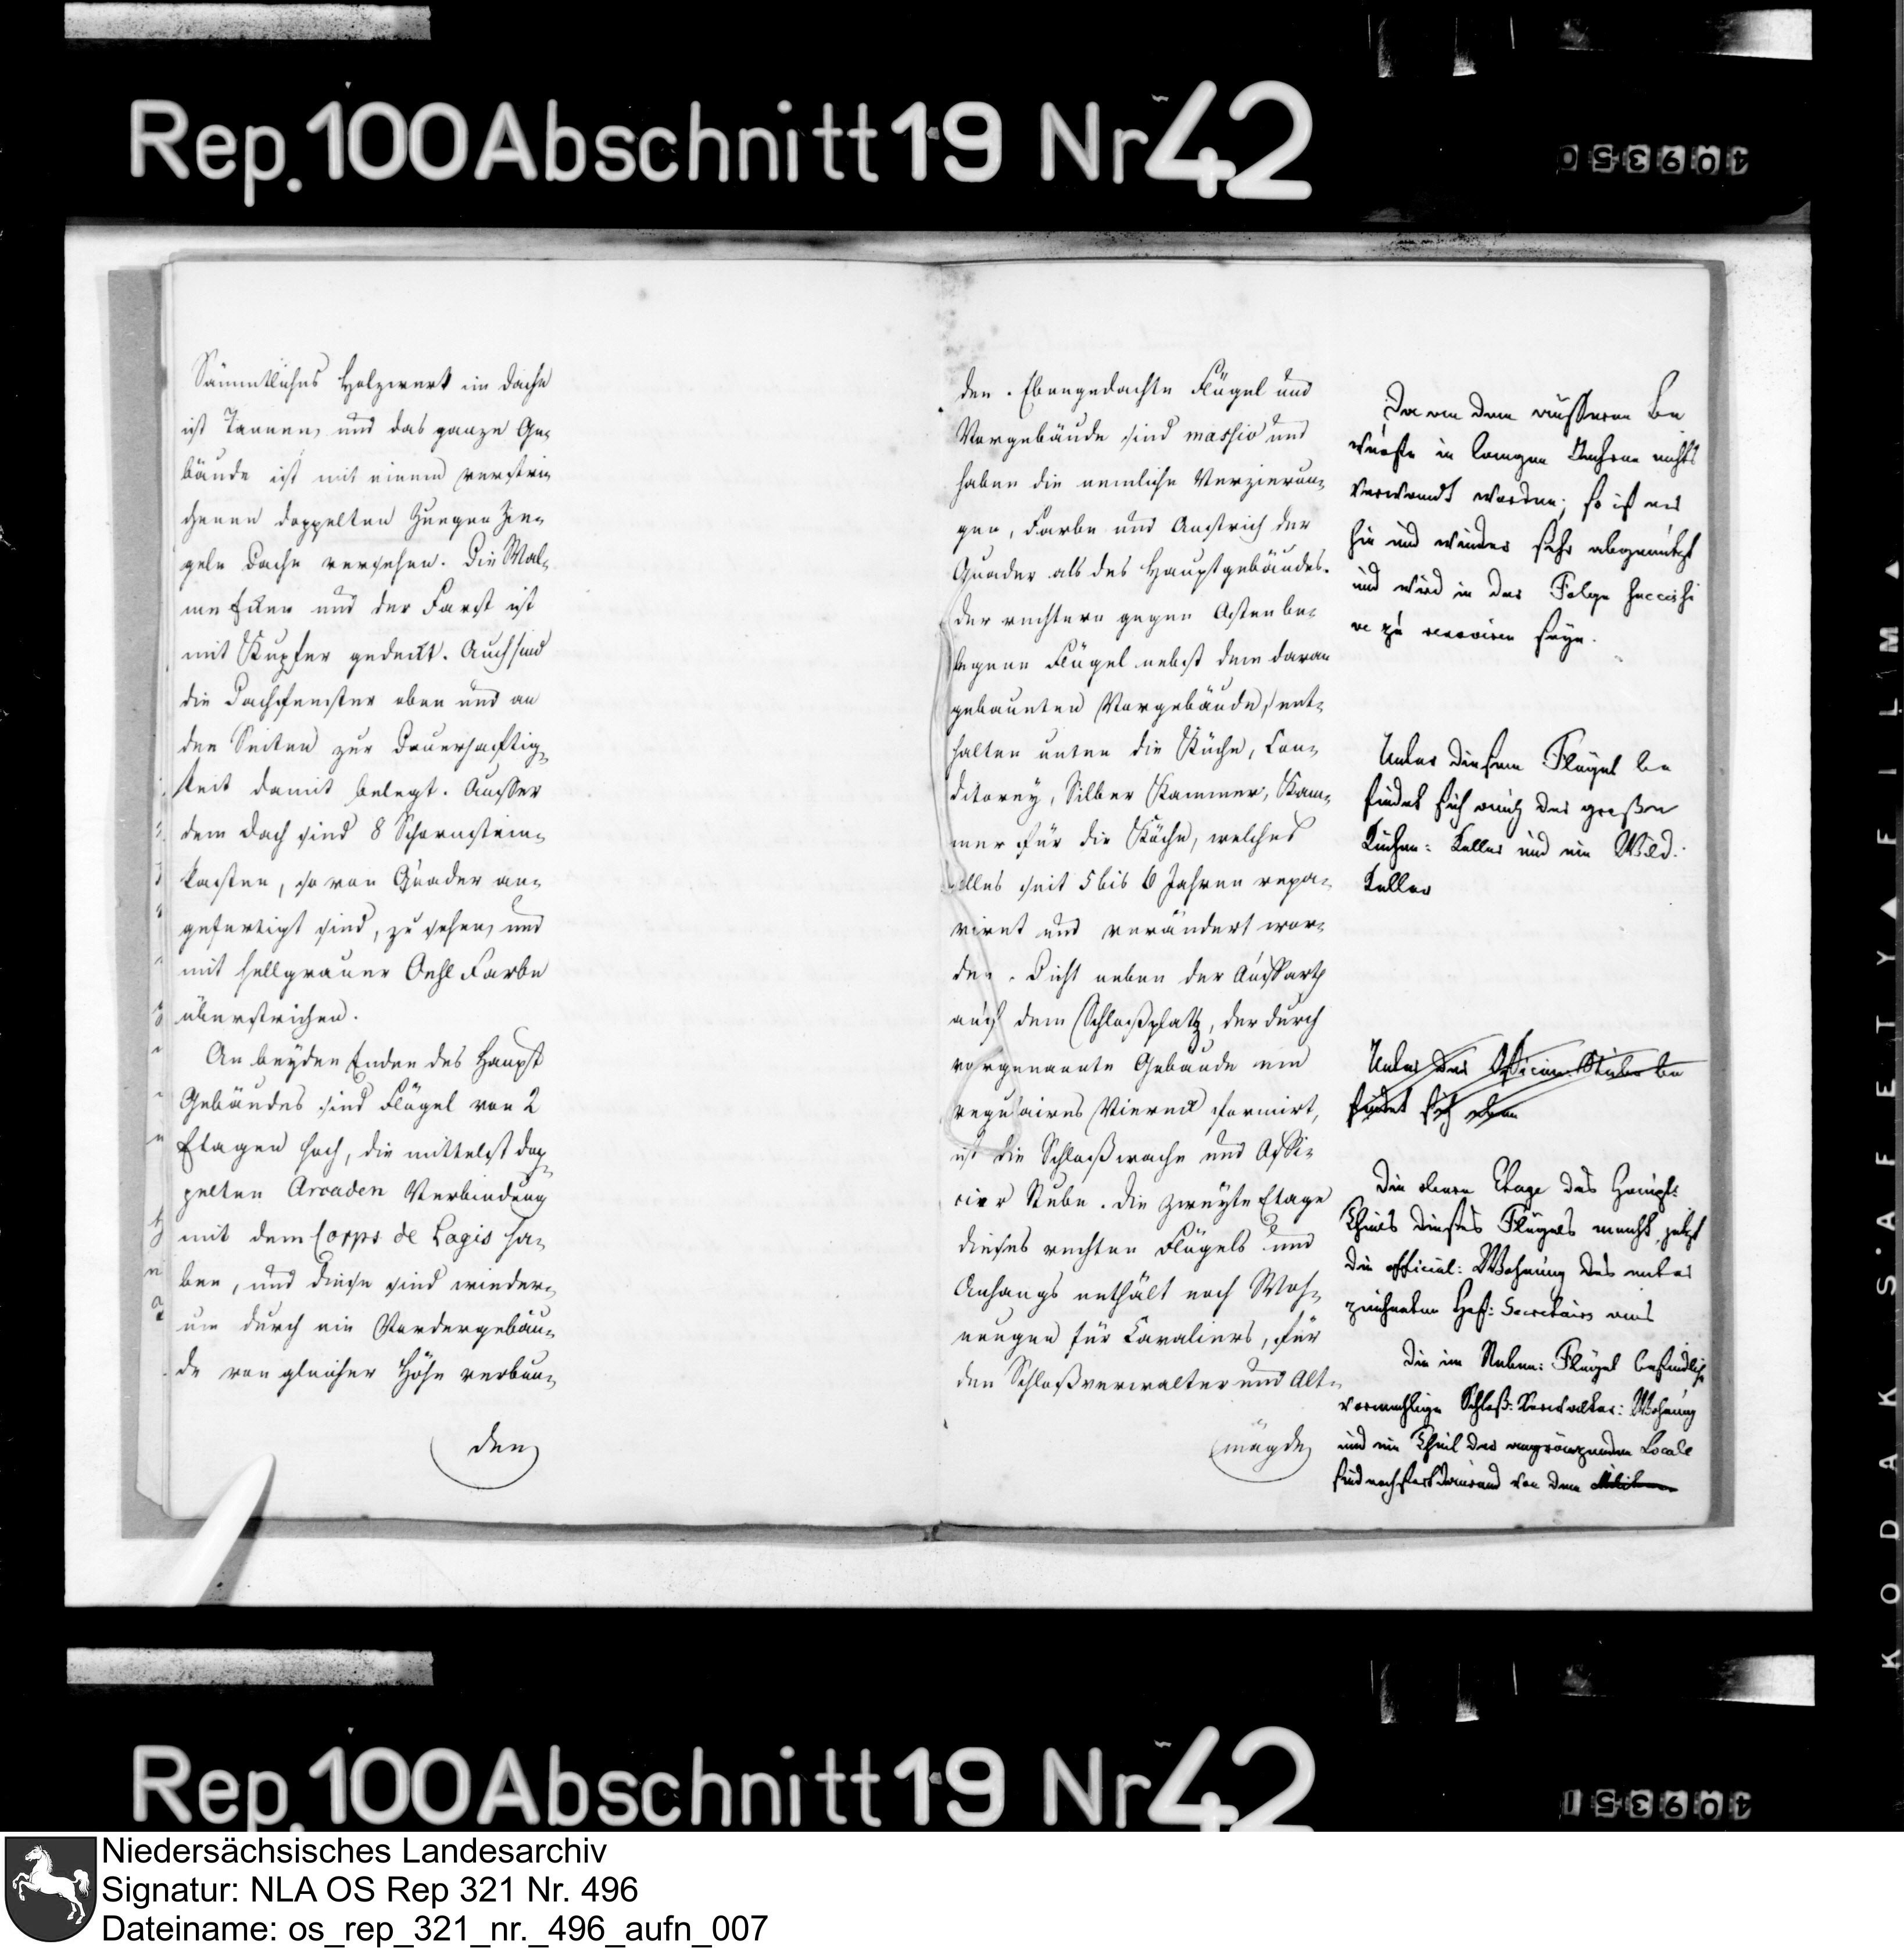 Rep. 100 Abschnitt 19 Nr 42
409350
Sämmtliches Holzwerk im Dache
ist Tannen, und das ganze Ge-
bäude ist mit einem verstri-
chenen doppelten Zungen Zie-
geln Dache versehen. Die Wal-
me Ecken und der Farst ist
mit Kupfer gedeckt. Auch sind
die Dachfenster oben und an
den Seiten zur Dauerhaftig-
keit damit belegt. Ausser
dem Dach sind 8 Schornstein-
kasten, so von Quader an-
gefertigt sind, zu sehen, und
mit hellgrauer Oehl Farbe
überstrichen.
An beyden Enden des Haupt
Gebäudes sind Flügel von 2
Etagen hoch, die mittelst dop-
pelten Arcaden Verbindung
mit dem Corps de Logis ha-
ben, und diese sind wieder-
um durch ein Vordergebäu-
de von gleicher Höhe verbun-
den
den. Ebengedachte Flügel und
Vorgebäude sind massiv und
haben die nemliche Verzierun-
gen, Farbe und Anstrich der
Quader als des Hauptgebäudes.
Der rechtere gegen Osten be-
legene Flügel nebst dem daran
gebaueten Vorgebäude, ent-
halten unten die Küche, Con-
ditorey, Silber Kammer, Kam-
mer für die Köche, welches
alles seit 5 bis 6 Jahren repa-
riret und verändert wor-
den. Dicht neben der Ausfarth
auf dem Schloßplatz, der durch
vorgenannte Gebäude ein
regulaires Viereck formirt,
ist die Schloßwache und Offi-
cier Stube. Die zweyte Etage
dieses rechten Flügels und
Anhangs enthält noch Woh-
nungen für Cavaliers, für
den Schloßverwalter und Alt-
mägde
Da an dem äusseren Be
wurfe in langen Jahren nichts
verwandt worden; so ist er
hin und wieder sehr abgenutzt
und wird in der Folge successi
ve zu renoviren seyn.
Unter diesem Flügel be
findet sich auch der große
Küchen: Keller und ein Wild:
Keller
Unter der Officier Stube be
findet sich
Die obere Etage des Haupt:
Theils dieses Flügels macht jetzt
die official: Wohnung des unter
zeichneten Hof: Secretairs aus
Die im Neben: Flügel befindliche
vormahlige Schloß: Verwalter: Wohnung
und ein Theil der angränzenden Locale
sind von dem
Rep. 100 Abschnitt 19 Nr 42
409351
KODAK SAFETY FILM
Niedersächsisches Landesarchiv
Signatur: NLA OS Rep 321 Nr. 496
Dateiname: os_rep_321_nr._496_aufn_007